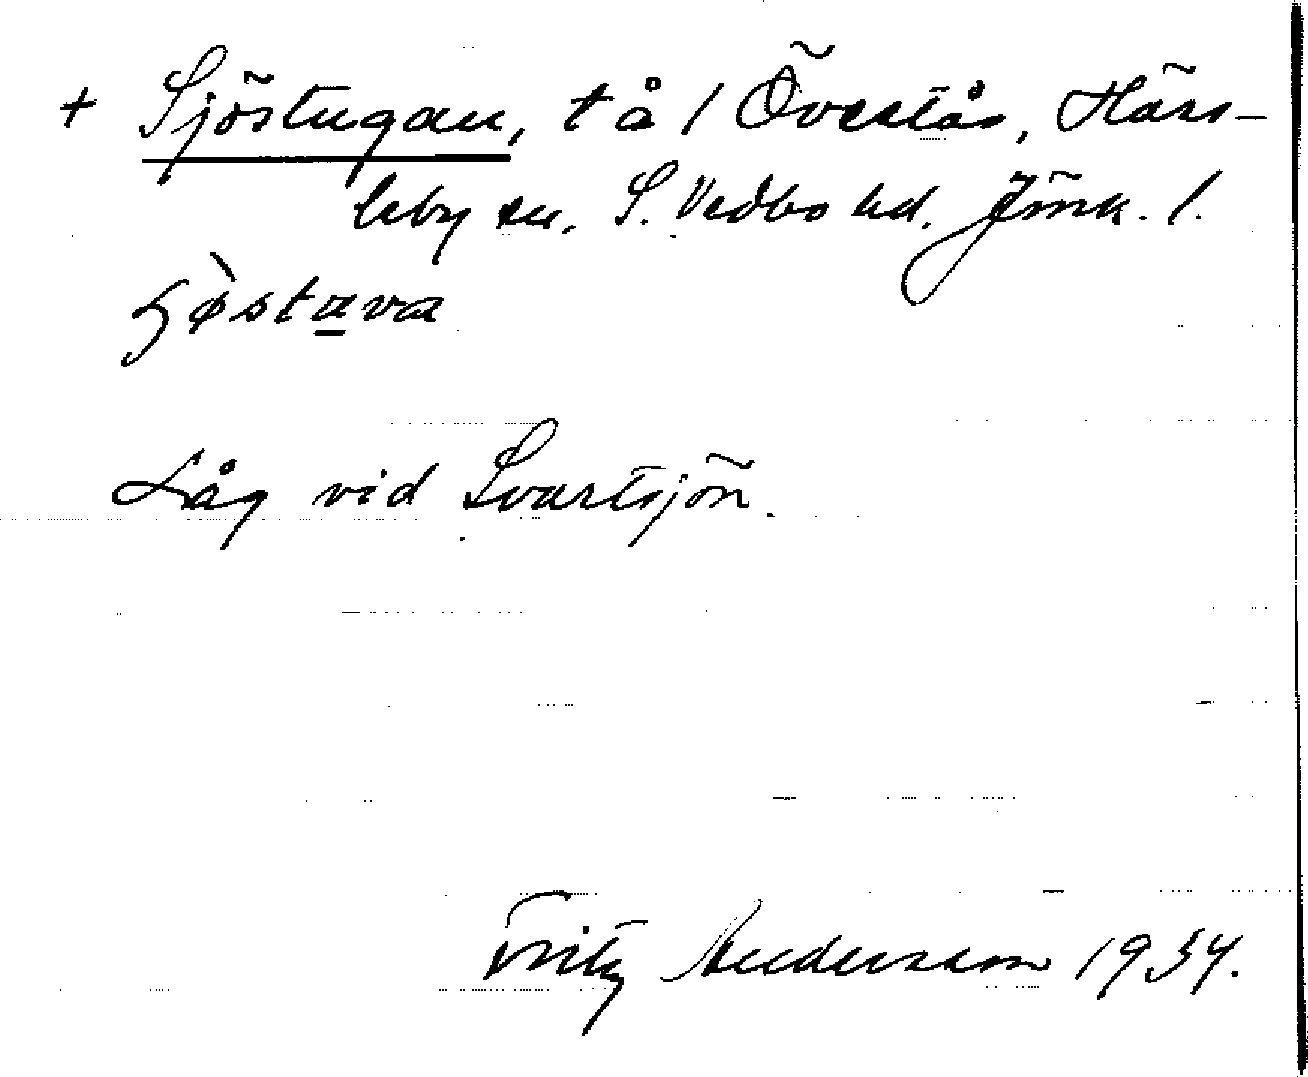 + Sjöstugan, t å / Överlås, Häss-
leby sn. S. Vedbo hd. Jönk. l.
ɧø̀stava
Låg vid Svartsjön.
Fritz Andersson 1934.